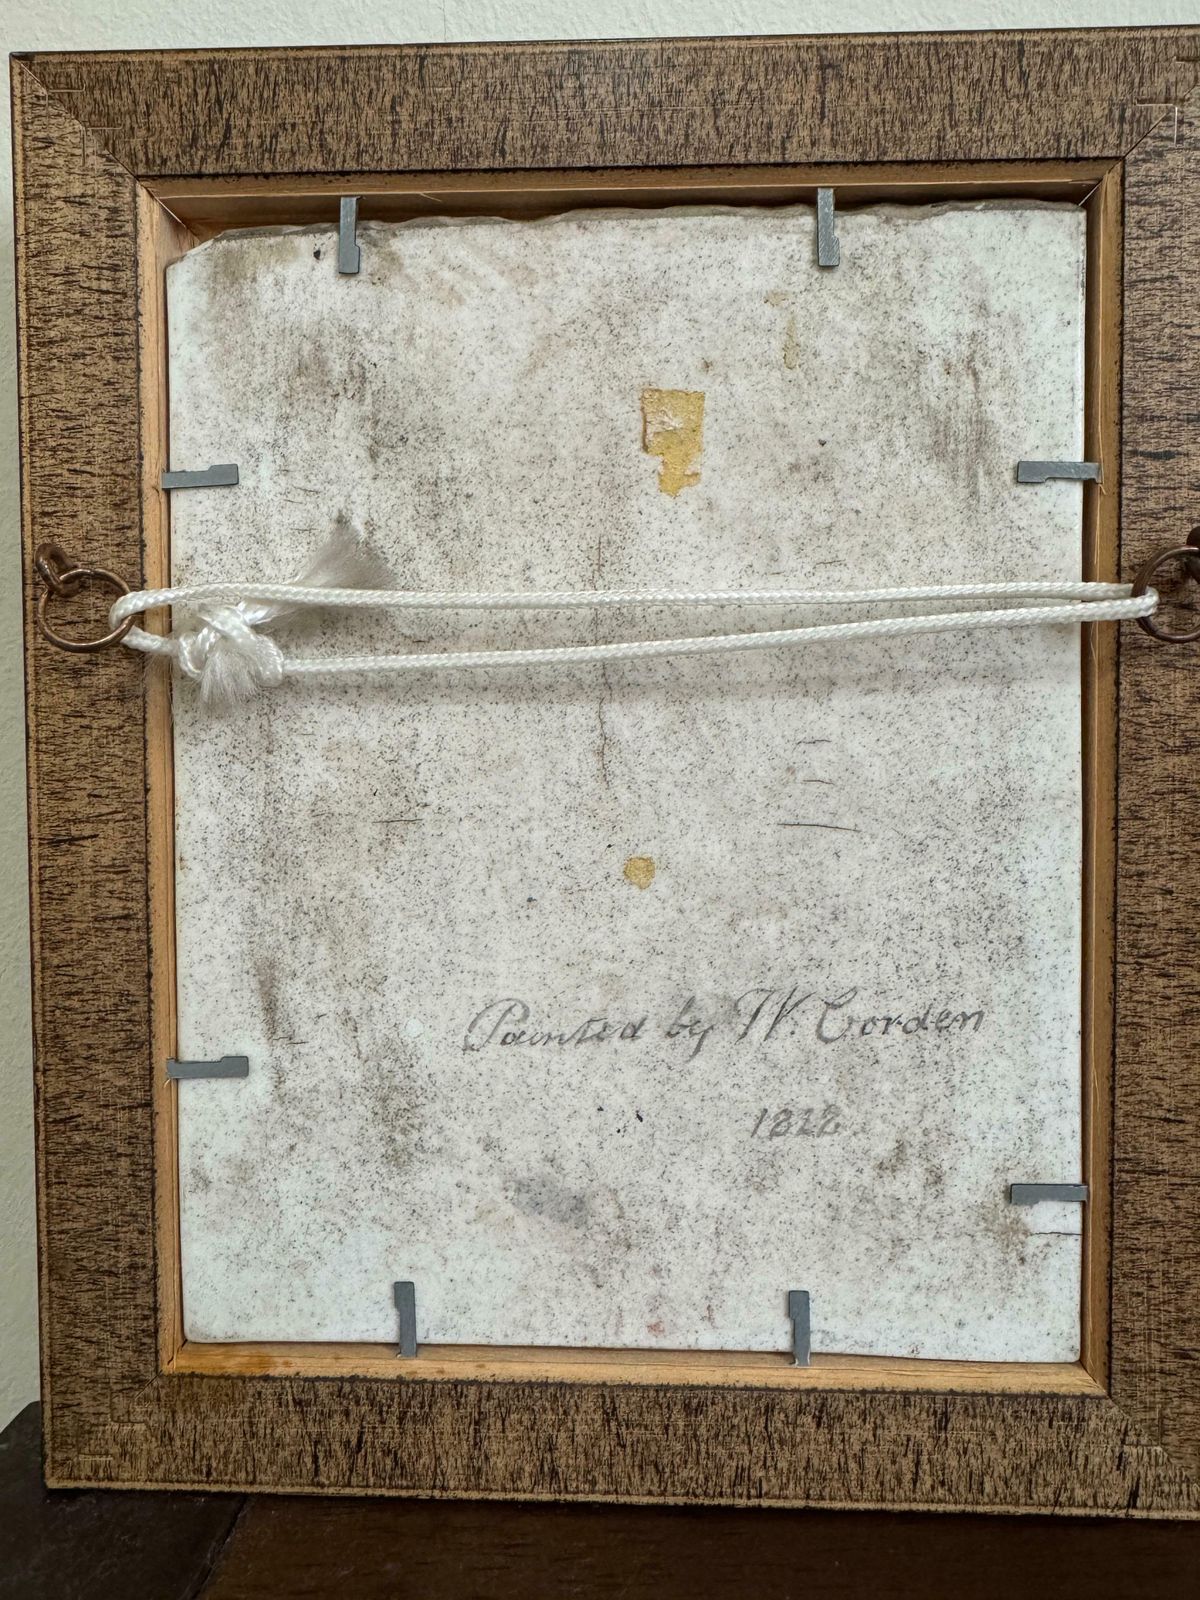 Painted by W. Corden
1828